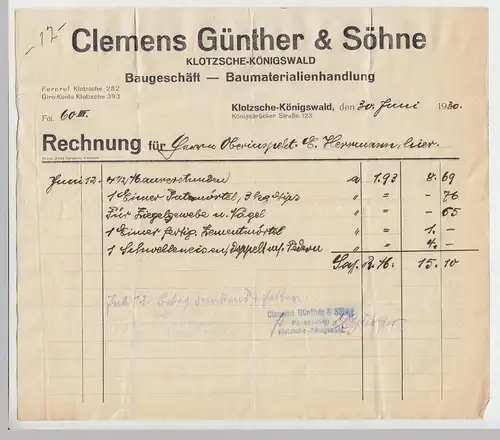 - 17 -
Clemens Günther & Söhne
KLOTZSCHE-KÖNIGSWALD
Baugeschäft — Baumaterialienhandlung
Fernruf Klotzsche 282
Giro-Konto Klotzsche 393
Klotzsche-Königswald, den 30. Juni 1930.
Königsbrücker Straße 123
Fol. 60 III.
Rechnung für Herrn Oberinspekt. E. Herrmann, hier.
Juni 12. 4 1/2 Maurerstunden a 1.93 8.69
1 Eimer Putzmörtel, 3 kg Gips " = - 76
Für Ziegelgewebe u. Nägel " = - 65
1 Eimer fertig. Zementmörtel " = 1. -
1 Schwelleneisen, doppelt m. Federn " = 4. -
15.10
Juli 12. Betrag dankend erhalten
Clemens Günther & Söhne
Klotzsche-Königswald